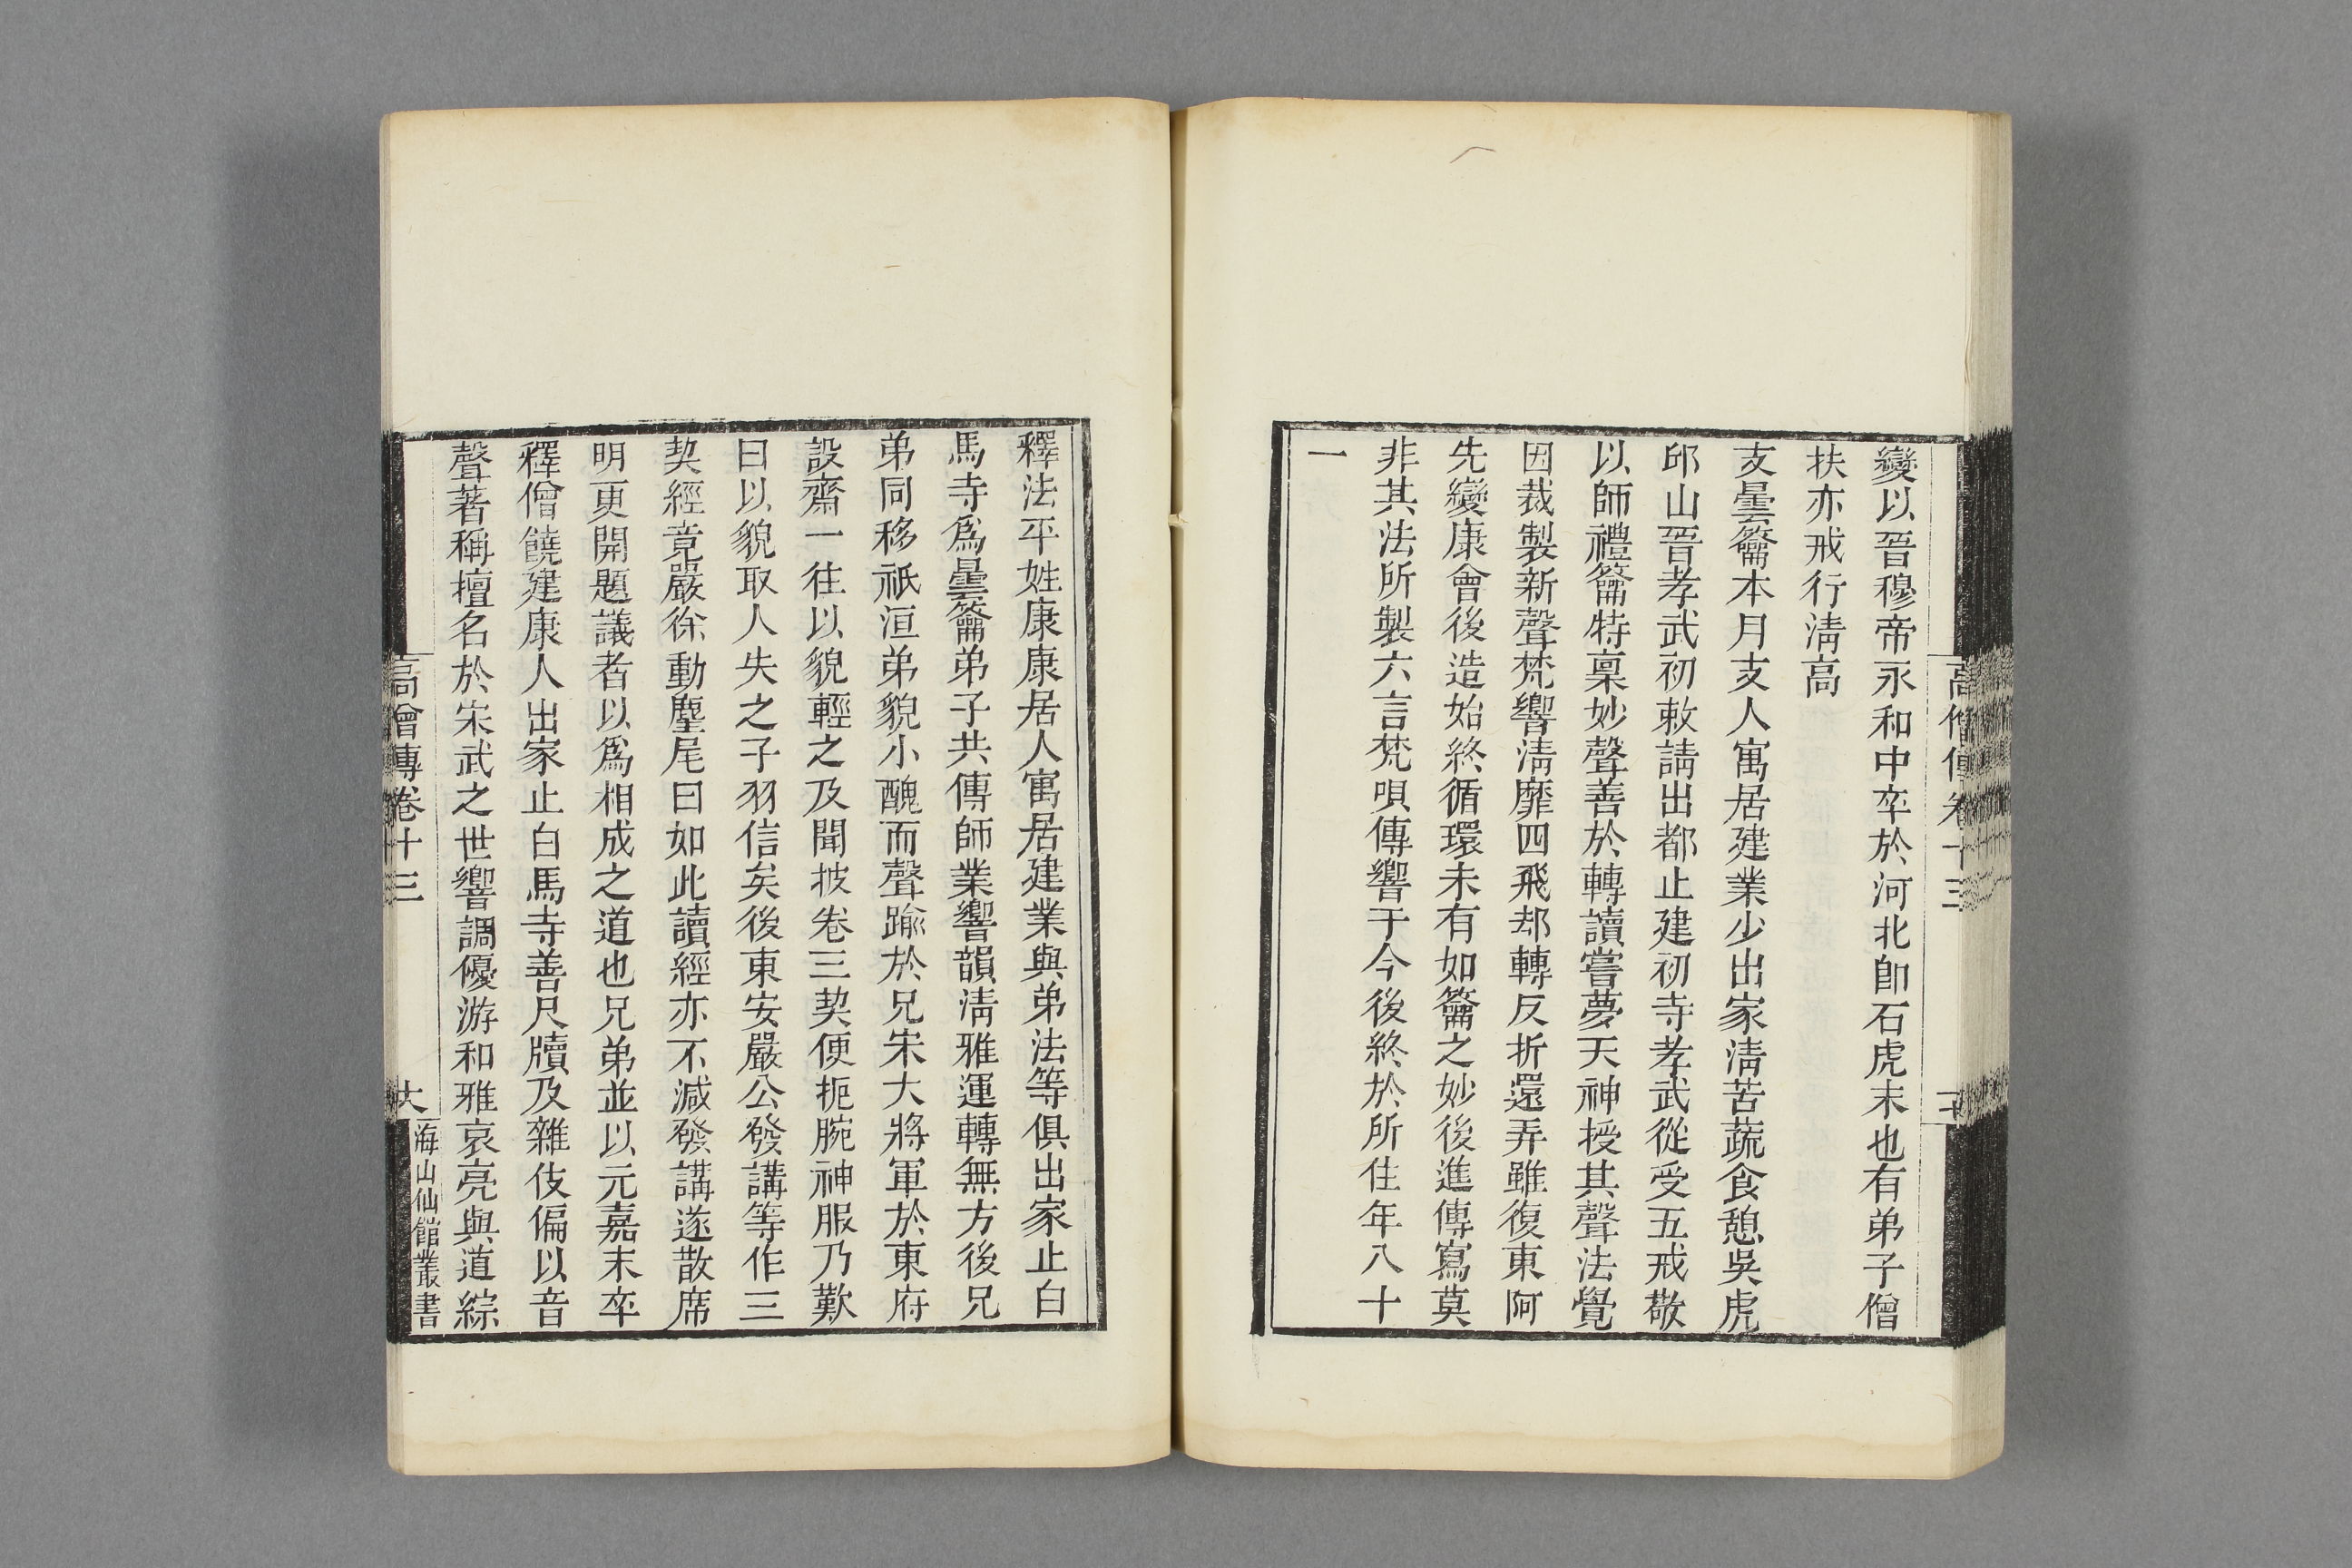 變以晉穆帝永和中卒於河北卽石虎末也有弟子僧
扶亦戒行淸高
支曇籥本月支人寓居建業少出家淸苦蔬食憩吳虎
邱山晉孝武初敕請出都止建初寺孝武從受五戒敬
以師禮籥特稟妙聲善於轉讀嘗夢天神授其聲法覺
因裁製新聲梵響淸靡四飛却轉反折還弄雖復東阿
先變康會後造始終循環未有如籥之妙後進傳寫莫
非其法所製六言梵唄傳響于今後終於所住年八十
一
釋法平姓康康居人寓居建業與弟法等俱出家止白
馬寺爲曇籥弟子共傳師業響韻淸雅運轉無方後兄
弟同移祇洹弟貌小醜而聲踰於兄宋大將軍於東府
設齋一往以貌輕之及聞披卷三契便扼腕神服乃歎
曰以貌取人失之子羽信矣後東安嚴公發講等作三
契經竟嚴徐動麈尾曰如此讀經亦不減發講遂散席
明更開題議者以爲相成之道也兄弟並以元嘉末卒
釋僧饒建康人出家止白馬寺善尺牘及雜伎偏以音
聲著稱擅名於宋武之世響調優游和雅哀亮與道綜
高僧傳卷十三
海山仙館叢書